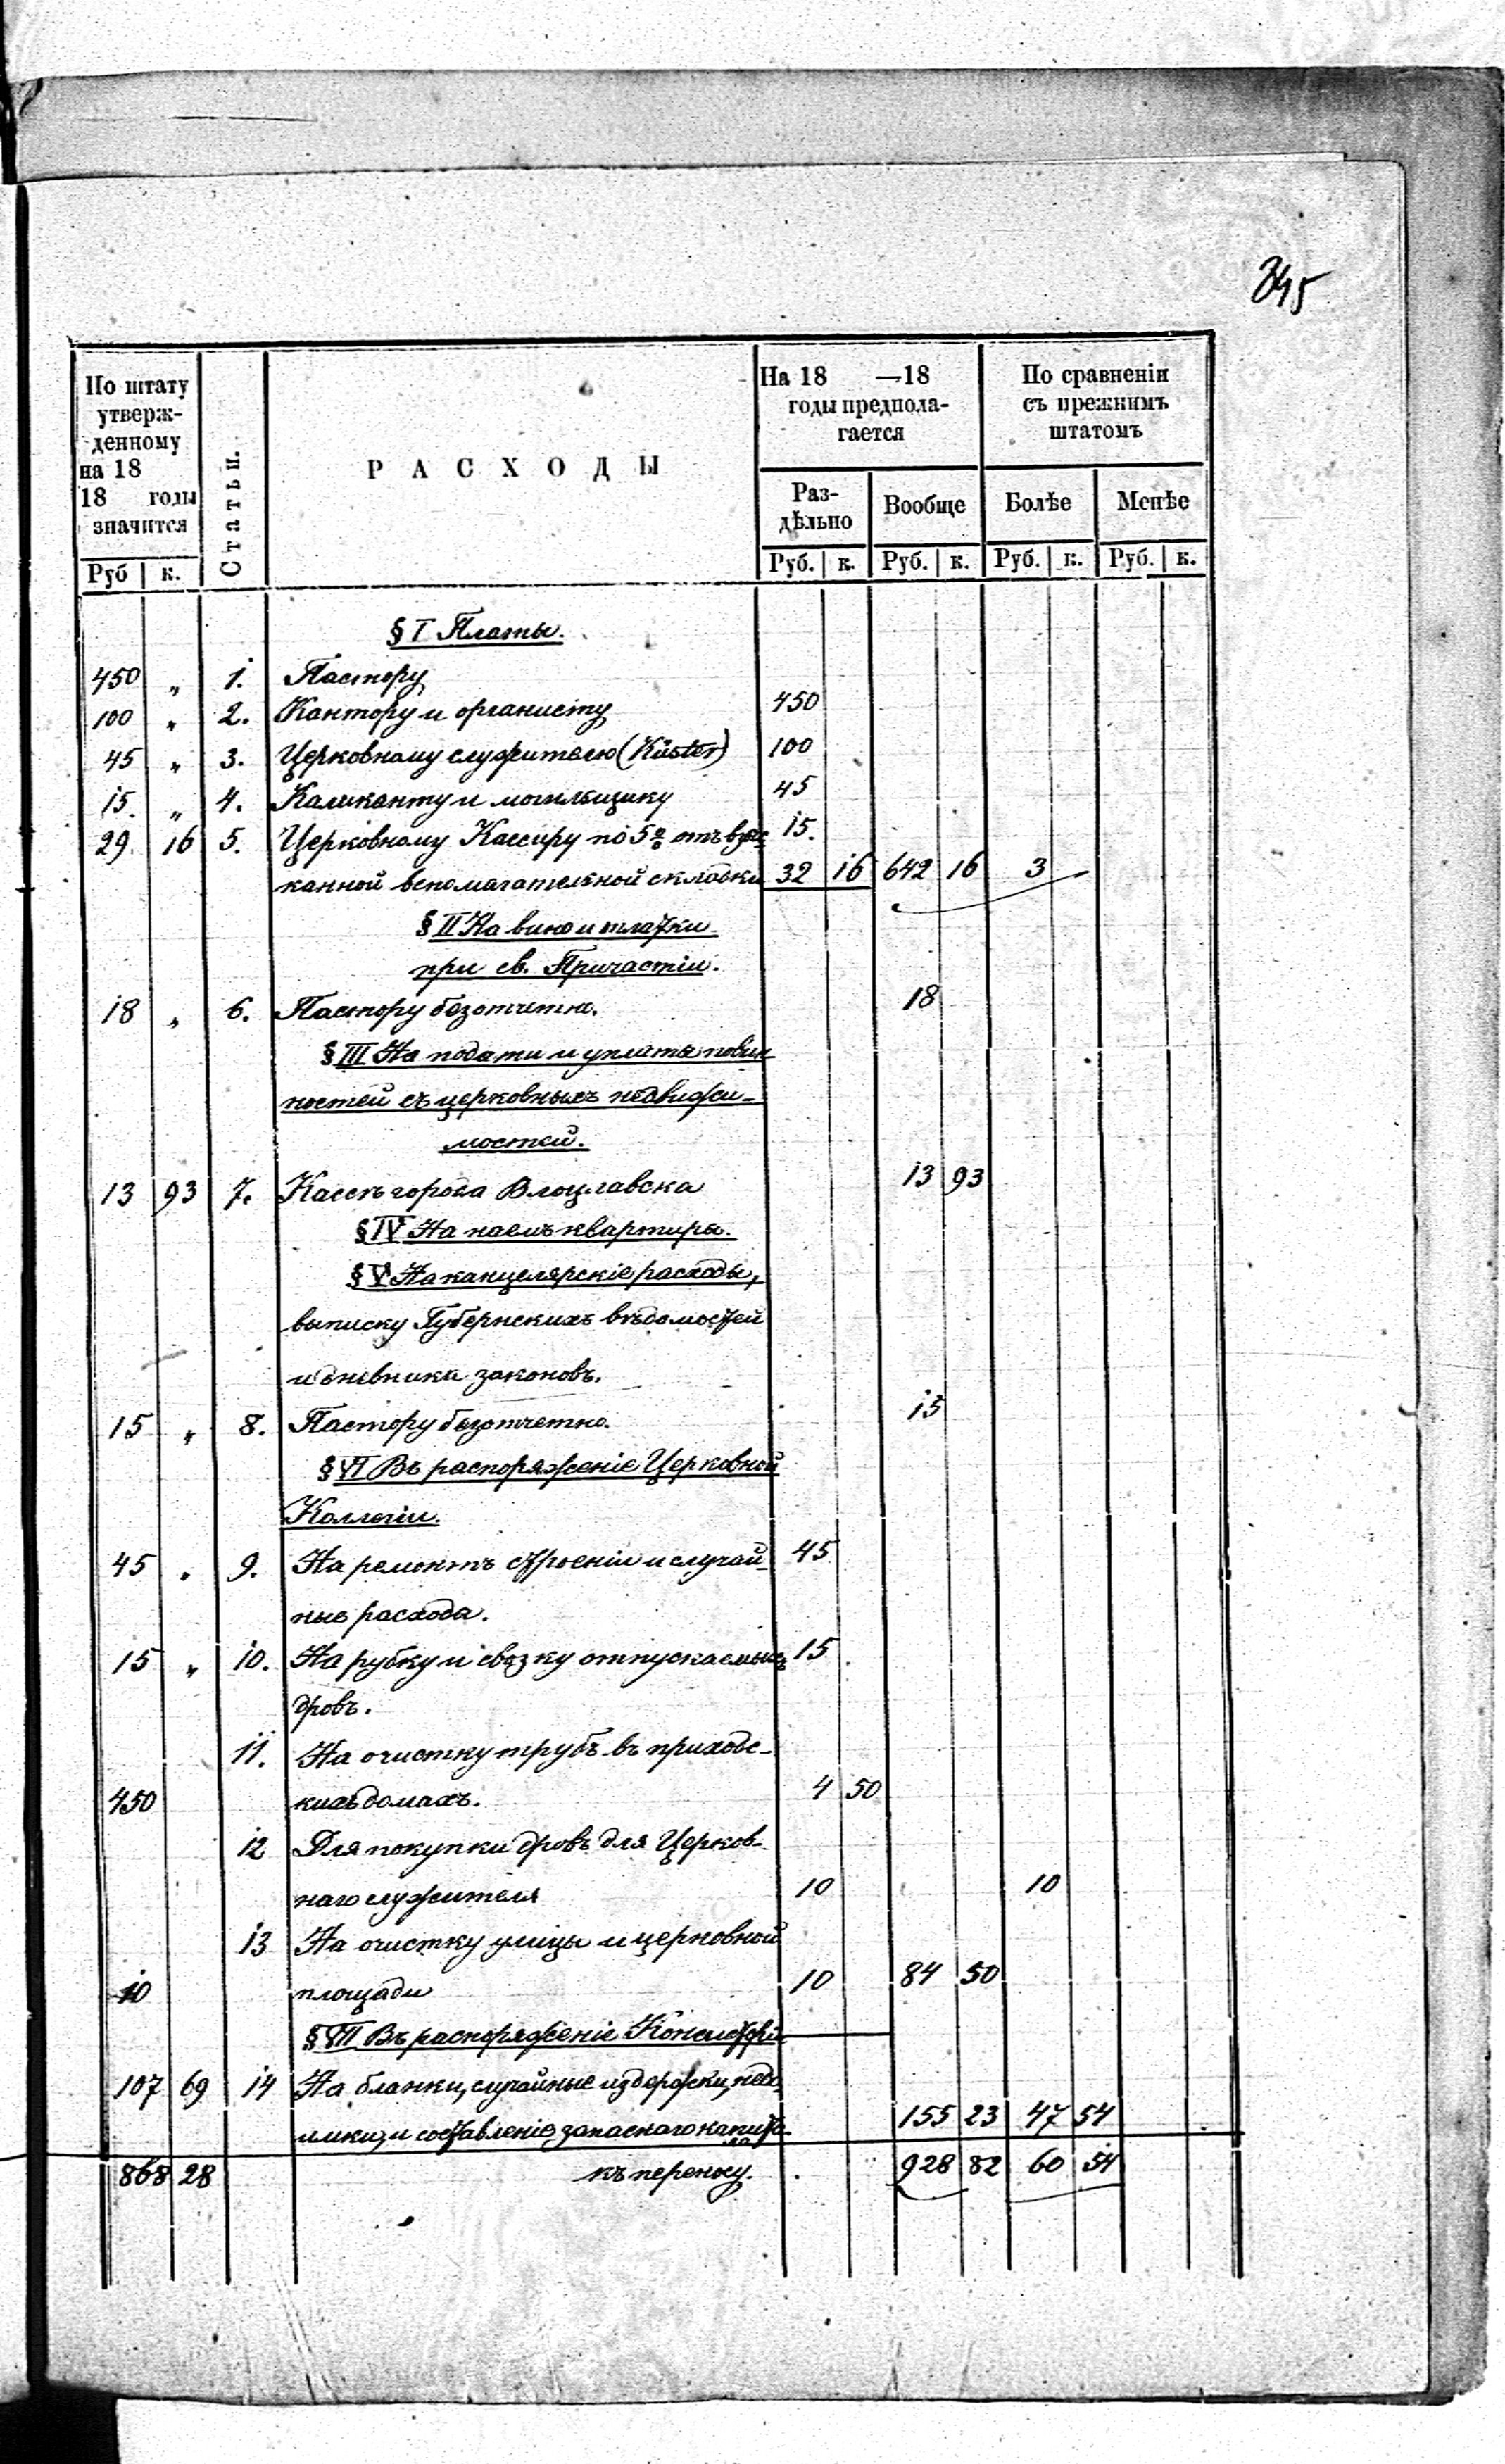 245
По штату утверж-денному на 18 18 годы значится
Статьи.
РАСХОДЫ
На 18 —18 годы предпола-гается
По сравненіи съ прежнимъ штатомъ
Раз-дѣльно Вообще Болѣе Менѣе
Руб к. Руб. к. Руб. к. Руб. к. Руб. к.
§ I Платы.
450 „ 1. Пастору
100 „ 2. Кантору и органисту 450
45 „ 3. Церковному служителю (Küster) 100
15. „ 4. Каликанту и могильщику 45
29. 16 5. Церковному Кассиру по 5% отъ взыс- 15.
канной вспомагательной складки 32 16 642 16 3
§ II На вино и оплатки
при св. Причастіи.
18 „ 6. Пастору безотчетно. 18
§ III На подати и уплаты повин
ностей съ церковныхъ недвижи-
мостей.
13 93 7. Кассѣ города Влоцлавска 13 93
§ IV На наемъ квартиры.
§ V На канцелярскіе расходы,
выписку Губернскихъ вѣдомостей
и дневника законовъ.
15 „ 8. Пастору безотчетно. 15
§ VI Въ распоряженіе Церковной
Коллегіи.
45 „ 9. На ремонтъ строеній и случай- 45
ные расхода.
15 „ 10. На рубку и свозку отпускаемыхъ 15
дровъ.
11. На очистку трубъ въ приходс-
450 кихъ домахъ. 4 50
12 Для покупки дровъ для Церков-
наго служителя 10 10
13 На очистку улицы и церковной
10 площади 10 84 50
§ VII Въ распоряженіе Консисторіи
107 69 14 На бланки, случайные издержки, недо
имки, и составленіе запаснаго капита- 155 23 47 54
ла
868 28 къ переносу. 928 82 60 54